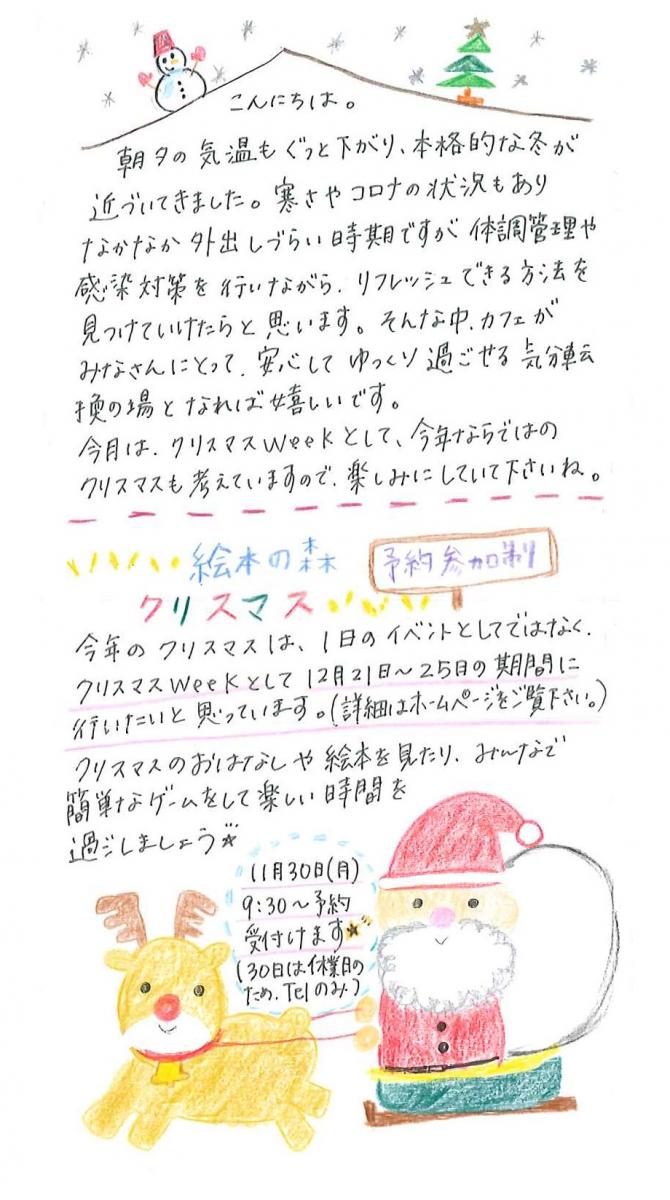 こんにちは。
朝夕の気温もぐっと下がり、本格的な冬が
近づいてきました。寒さやコロナの状況もあり
なかなか外出しづらい時期ですが体調管理や
感染対策を行いながら、リフレッシュできる方法を
見つけていけたらと思います。そんな中、カフェが
みなさんにとって、安心してゆっくり過ごせる気分転
換の場となれば嬉しいです。
今月は、クリスマスweekとして、今年ならではの
クリスマスも考えていますので、楽しみにしていて下さいね。
絵本の森 予約参加制
クリスマス
今年のクリスマスは、1日のイベントとしてではなく、
クリスマスweekとして12月21日〜25日の期間に
行いたいと思っています。(詳細はホームページをご覧下さい。)
クリスマスのおはなしや絵本を見たり、みんなで
簡単なゲームをして楽しい時間を
過ごしましょう☆
11月30日(月)
9:30〜予約
受付けます★
(30日は休業日の
ため、Telのみ)